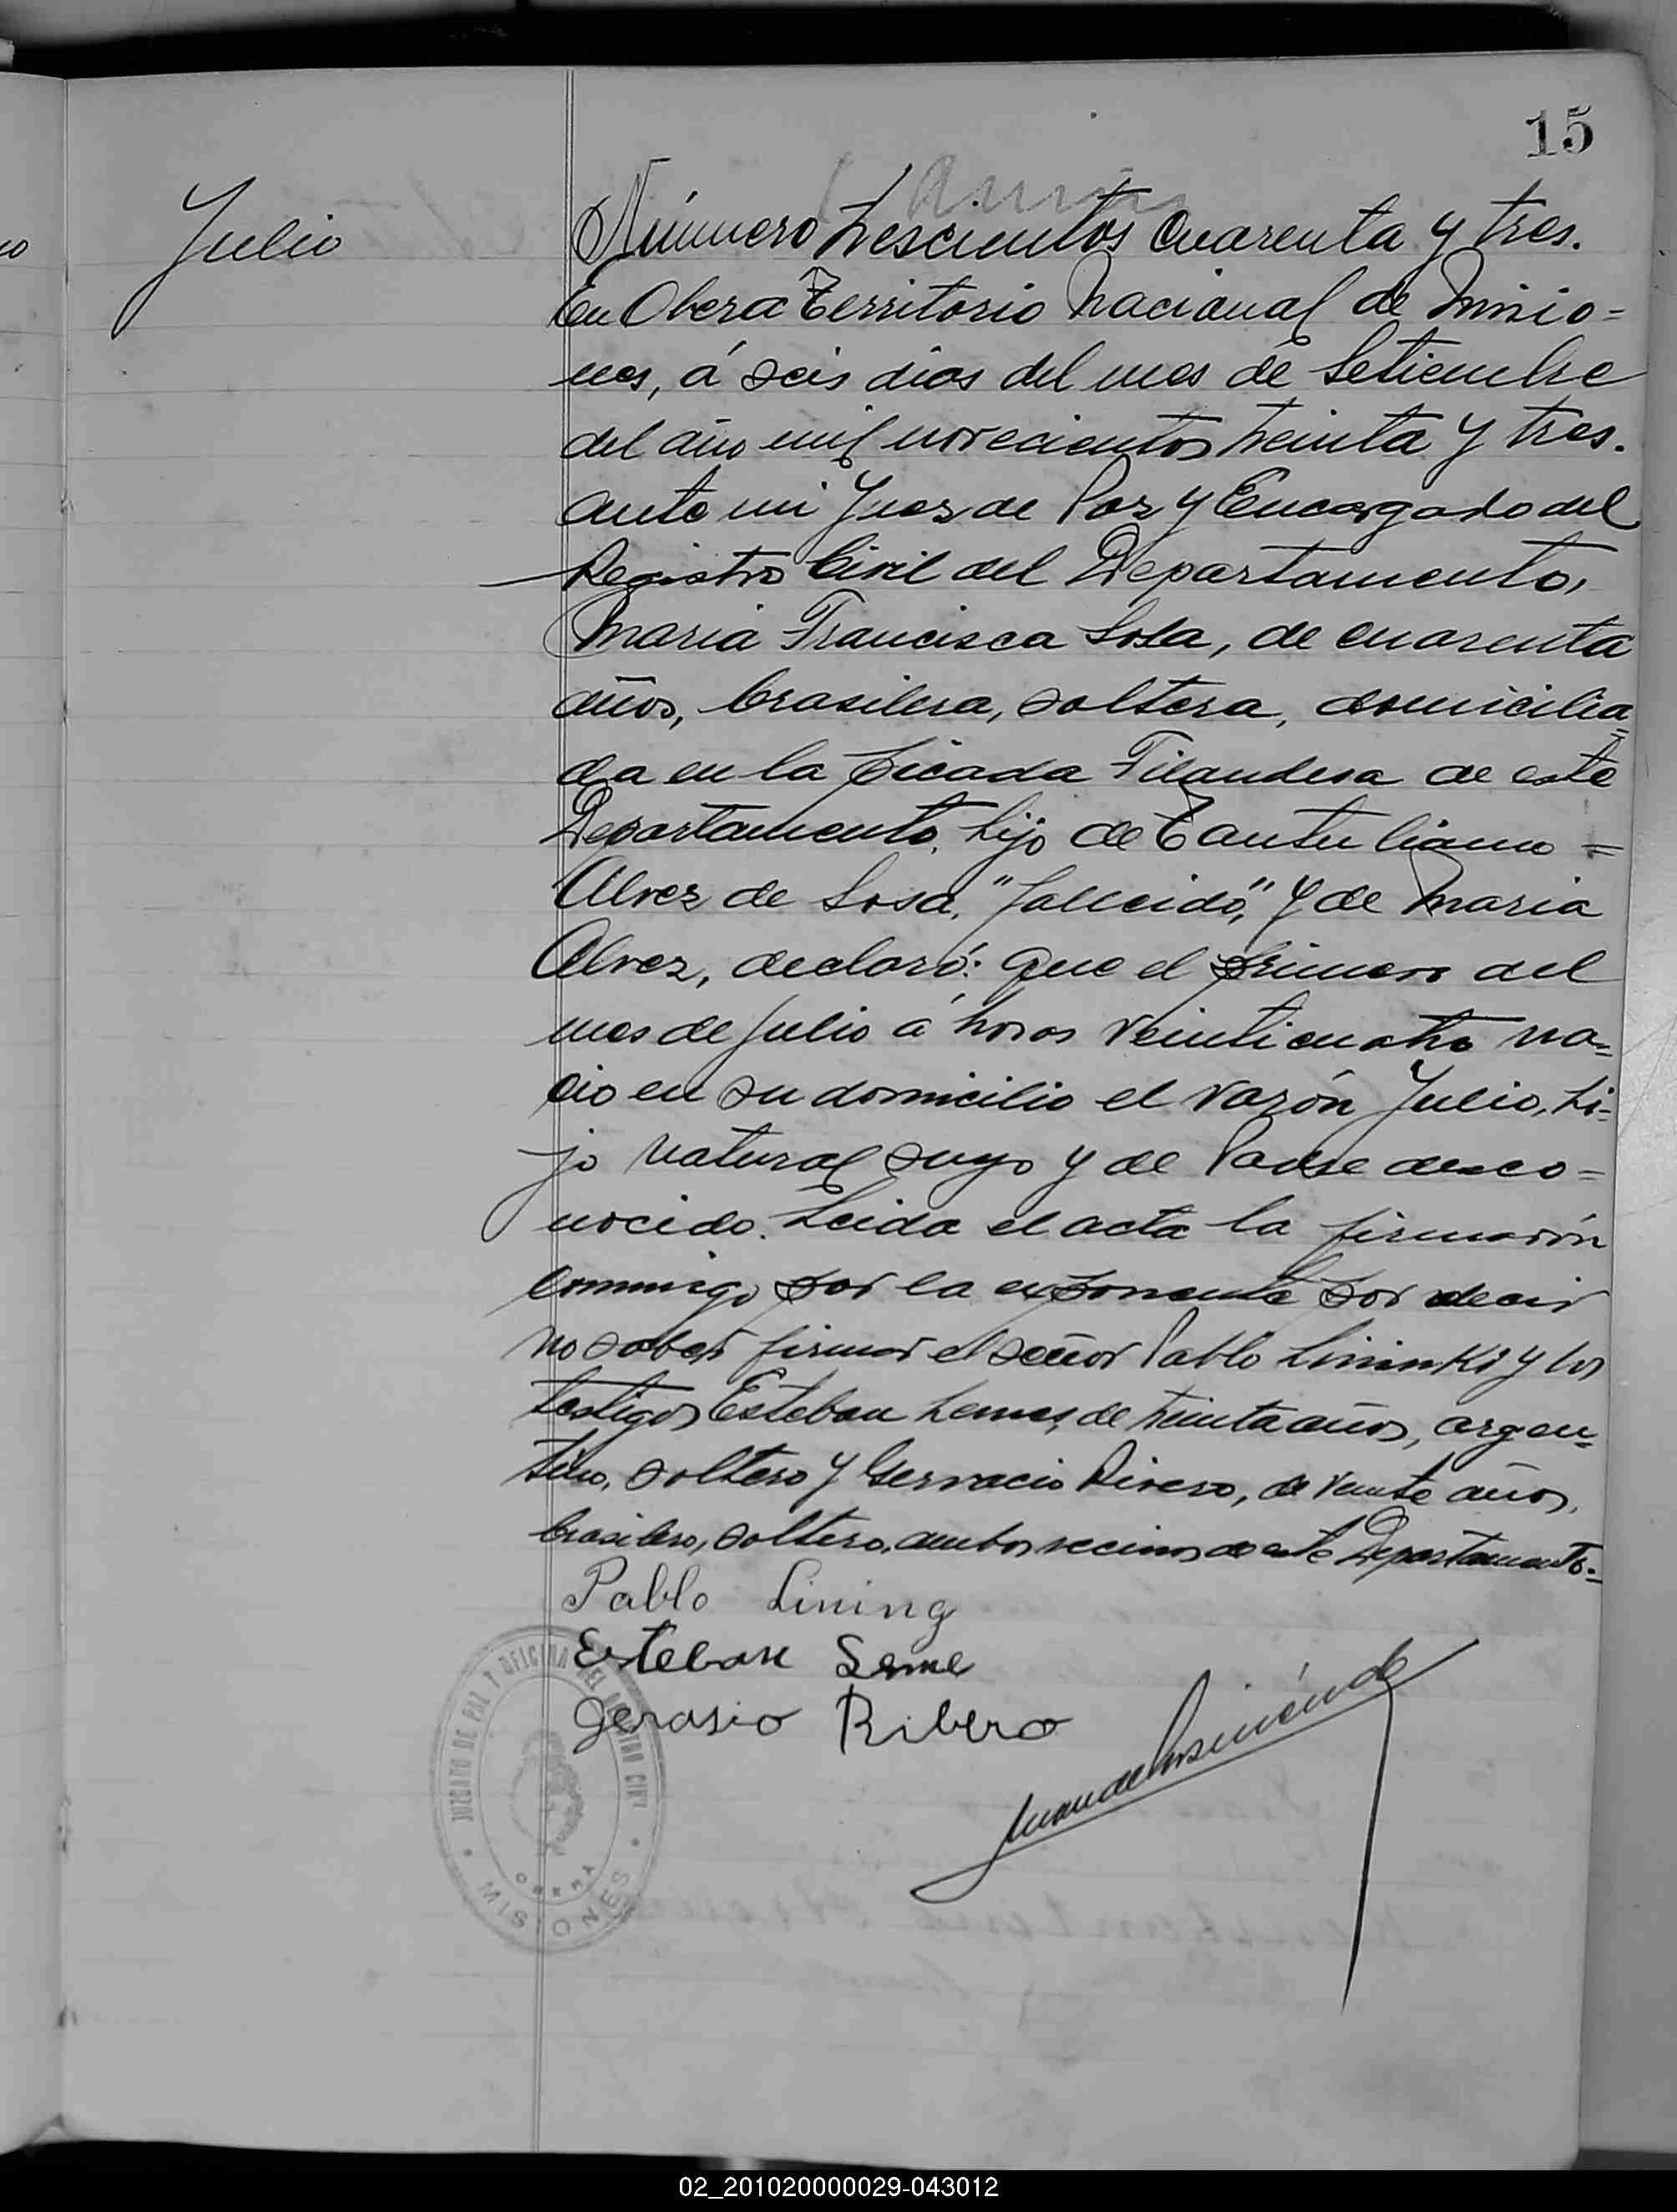 15
Julio
Número trescientos cuarenta y tres.
En Obera Territorio Nacional de Misio=
nes, á seis dias del mes de Setiembre
del año mil novecientos treinta y tres.
ante mi Juez de Paz y Encargado del
Registro Civil del Departamento,
Maria Francisca Sosa, de cuarenta
años, brasilera, soltera, domicilia=
da en la picada Filandesa de este
Departamento, hijo de
Alvez de Sosa, "fallecido", y de Maria
Alvez, declaró: que el primero del
mes de Julio á horas veinticuatro na=
cio en su domicilio el varón Julio, hi=
jo natural suyo y de Padre desco=
nocido. Leida el acta la firmarón
conmigo por la exponente por decir
no saber firmar el señor Pablo y los
testigos Esteban Lemes, de treinta años, argen=
tino, soltero y Gervacio Rivero, de veinte años,
brasilero, soltero, ambos vecinos de este Departamento.=
Pablo Lining
Esteban Leme
Gerasio Ribero
JUZGADO DE PAZ Y OFICINA DEL REGISTRO CIVIL
OBERA
MISIONES
02_201020000029-043012